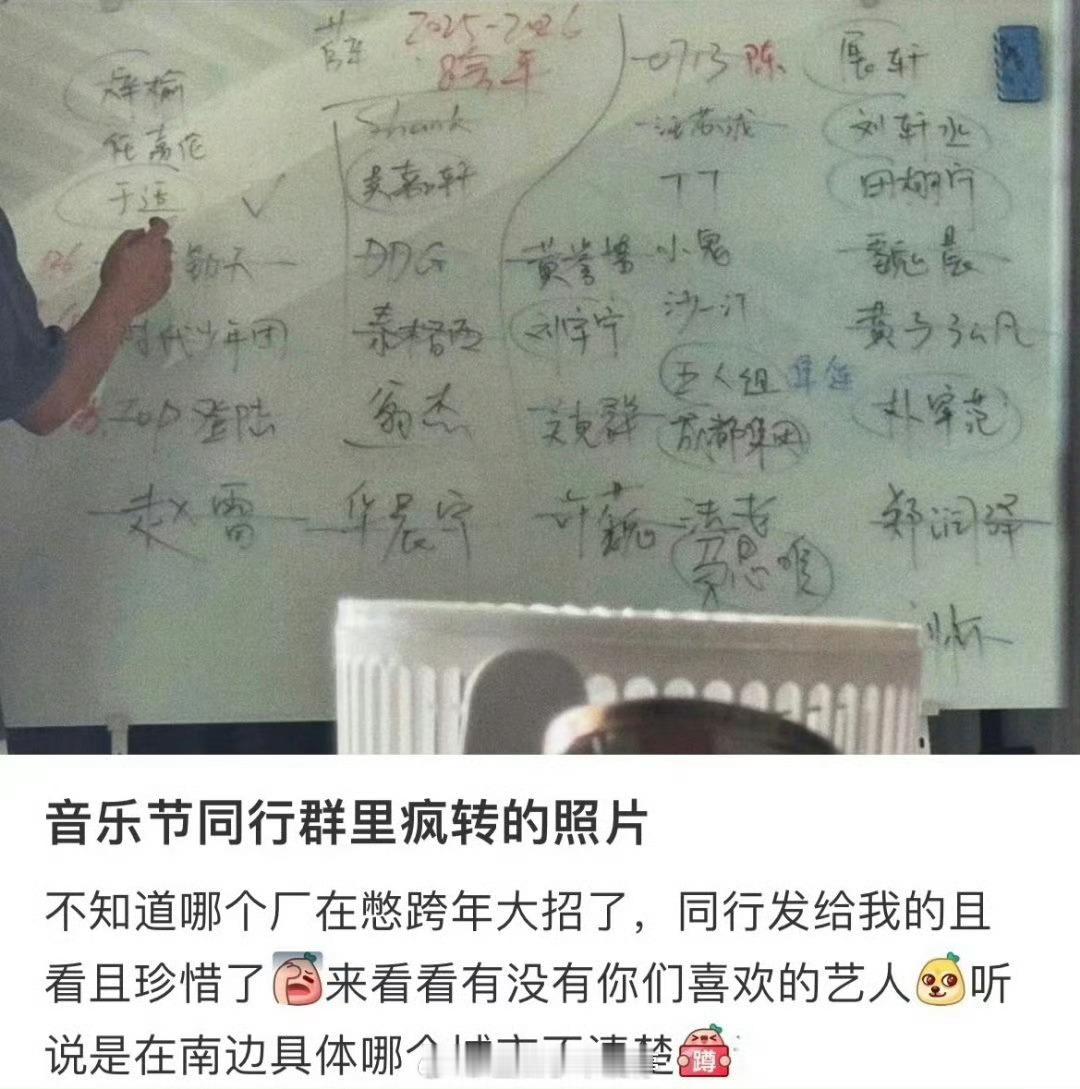 2025-2026
跨年
单榆
任嘉伦
于适
时代少年团
TOP登陆
赵雷
Shank
DDG
秦格西
翁杰
华晨宇
0713 陈
汪苏泷
丁丁
黄誉博 小鬼
刘宇宁 沙一汀
五人组
成都集团
许巍 法老
马思唯
展轩
刘轩丞
田栩宁
魏晨
黄子弘凡
朴宰范
郑润泽
音乐节同行群里疯转的照片
不知道哪个厂在憋跨年大招了，同行发给我的且
看且珍惜了来看看有没有你们喜欢的艺人听
说是在南边具体哪个城市不清楚
蹲